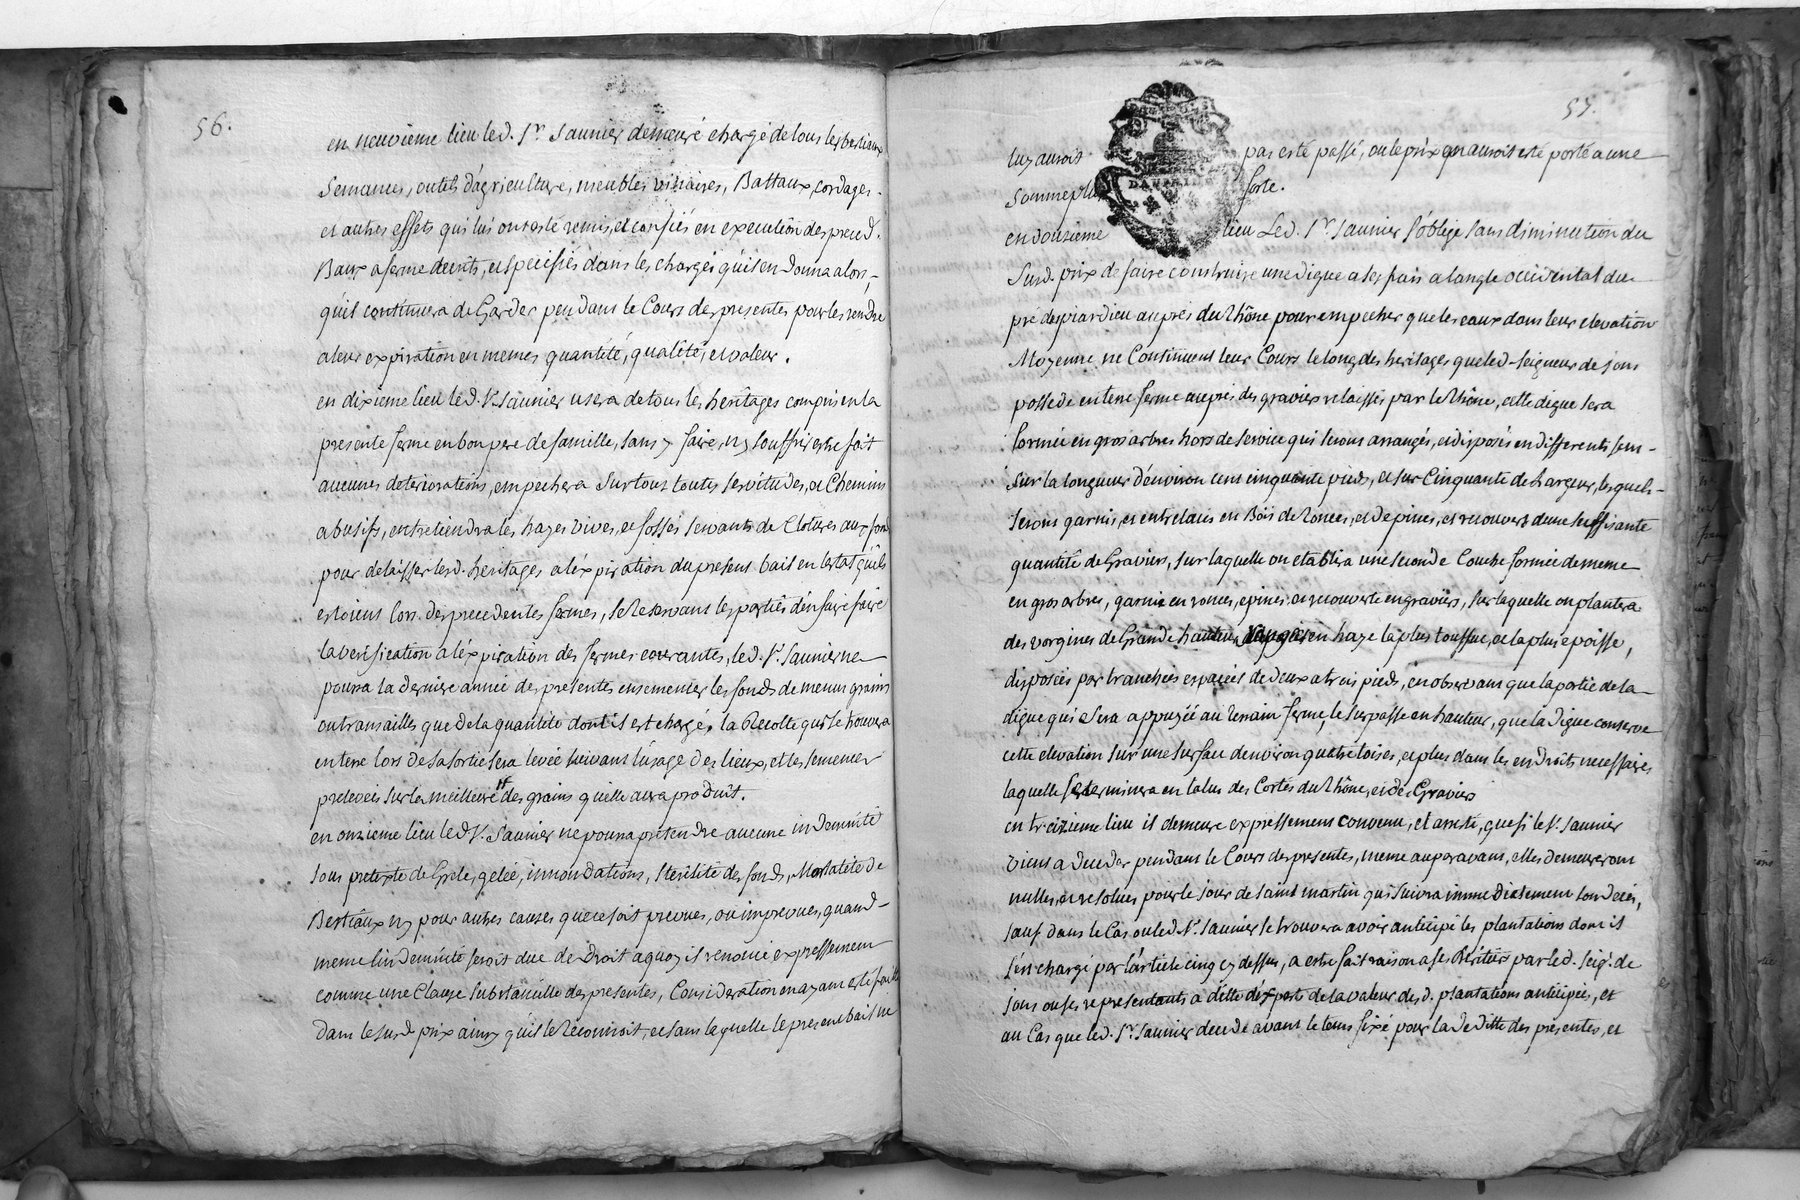 56.
en neuvieme lieu led. Sr. Saunier demeure chargé de tous les bestiaux
Semances, outils d'agriculture, meubles vinaires, Battaux, cordages
et autres effets qui lui ont esté remis, et confiés en execution des preced.
Baux a ferme decrits, et specifiés dans les charges qu'il en donna alors,
qu'il continuera de Garder pendant le Cours des presentes pour les rendre
a leur expiration en memes quantité, qualité, et valeur.
en dixieme lieu led. Sr. Saunier usera de tous les heritages compris en la
presente ferme en bon pere de famille, sans y faire, ny souffrir estre fait
aucunes deteriorations, empechera sur tout toutes servitudes, et Chemins
abusifs, entretiendra les hayes vives, et fossés servants de Clotures aux fonds
pour delaisser lesd. heritages a l'expiration du present bail en l'estat qu'ils
estoient lors des precedentes fermes, se Reservant les parties d'en faire faire
la verification a l'expiration des fermes courantes, led. Sr. Saunier ne
pourra la derniere année des presentes ensemencer les fonds de menus grains
ou transailles que de la quantité dont il est chargé, la Recolte qui se trouvera
en terre lors de sa sortie sera levée suivant l'usage des lieux, et les semences
prelevées sur la meilleure des grains qu'elle aura produit.
en onzieme lieu led. Sr. Saunier ne pourra pretendre aucune indemnité
sous pretexte de Grele, gelée, innondations, sterilité des fonds, Mortalité de
Bestiaux ny pour autres causes que ce soit prevues, ou imprevues, quand
meme l'indemnité seroit due de Droit a quoy il renonce expressement
comme une Clause substancielle des presentes, Consideration en ayant esté faite
dans le susd. prix ainsy qu'il le Reconnoit, et sans laquelle le present bail ne
57.
luy auroit pas esté passé, ou le prix en auroit esté porté a une
somme plus forte.
en douzieme lieu Led. Sr. Saunier s'oblige sans diminution du
susd. prix de faire construire une digue a ses frais a l'angle occidental du
pré des piardieu aupres du Rhône pour empecher que les eaux dans leur elevation
Moyenne ne Continuent leur Cours le long des heritages que led. Seigneur de Jons
possede en terre ferme aupres des graviers relaissés par le Rhône, cette digue sera
formée en gros arbres hors de service qui seront arrangés, et disposés en differents sens
sur la longueur d'environ cent cinquante pieds, et sur Cinquante de largeur, lesquels
seront garnis, et entrelacés en Bois de ronces, et d'epines, et recouverts d'une suffisante
quantité de Graviers, sur laquelle on etablira une seconde Couche formée de meme
en gros arbres, garnie en ronces, epines, et recouverte en graviers, sur laquelle on plantera
des vorgines de Grande hauteur en haye la plus touffue, et la plus epoisse,
disposées par tranchées espacées de deux a trois pieds, en observant que la partie de la
digue qui sera appuyée au terrain ferme, le surpasse en hauteur, que la digue conserve
cette elevation sur une surface d'environ quatre toises, et plus dans les endroits necessaires
laquelle se terminera en talus des Cottés du Rhône, et des Graviers
en treizieme lieu il demeure expressement convenu, et arresté, que si le Sr. Saunier
vient a deceder pendant le Cours des presentes, meme auparavant, elles demeureront
nulles, et resolues pour le jour de saint martin qui suivra immediatement son decés,
sauf dans le Cas ou led. Sr. Saunier se trouvera avoir anticipé les plantations dont il
s'est chargé par l'article cinq cy dessus, a estre fait raison a ses Heritiers par led. Seigr. de
Jons ou ses representants a ditte d'expert de la valeur desd. plantations anticipées, et
au Cas que led. Sr. Saunier decede avant le tems fixé pour la deditte des presentes, et